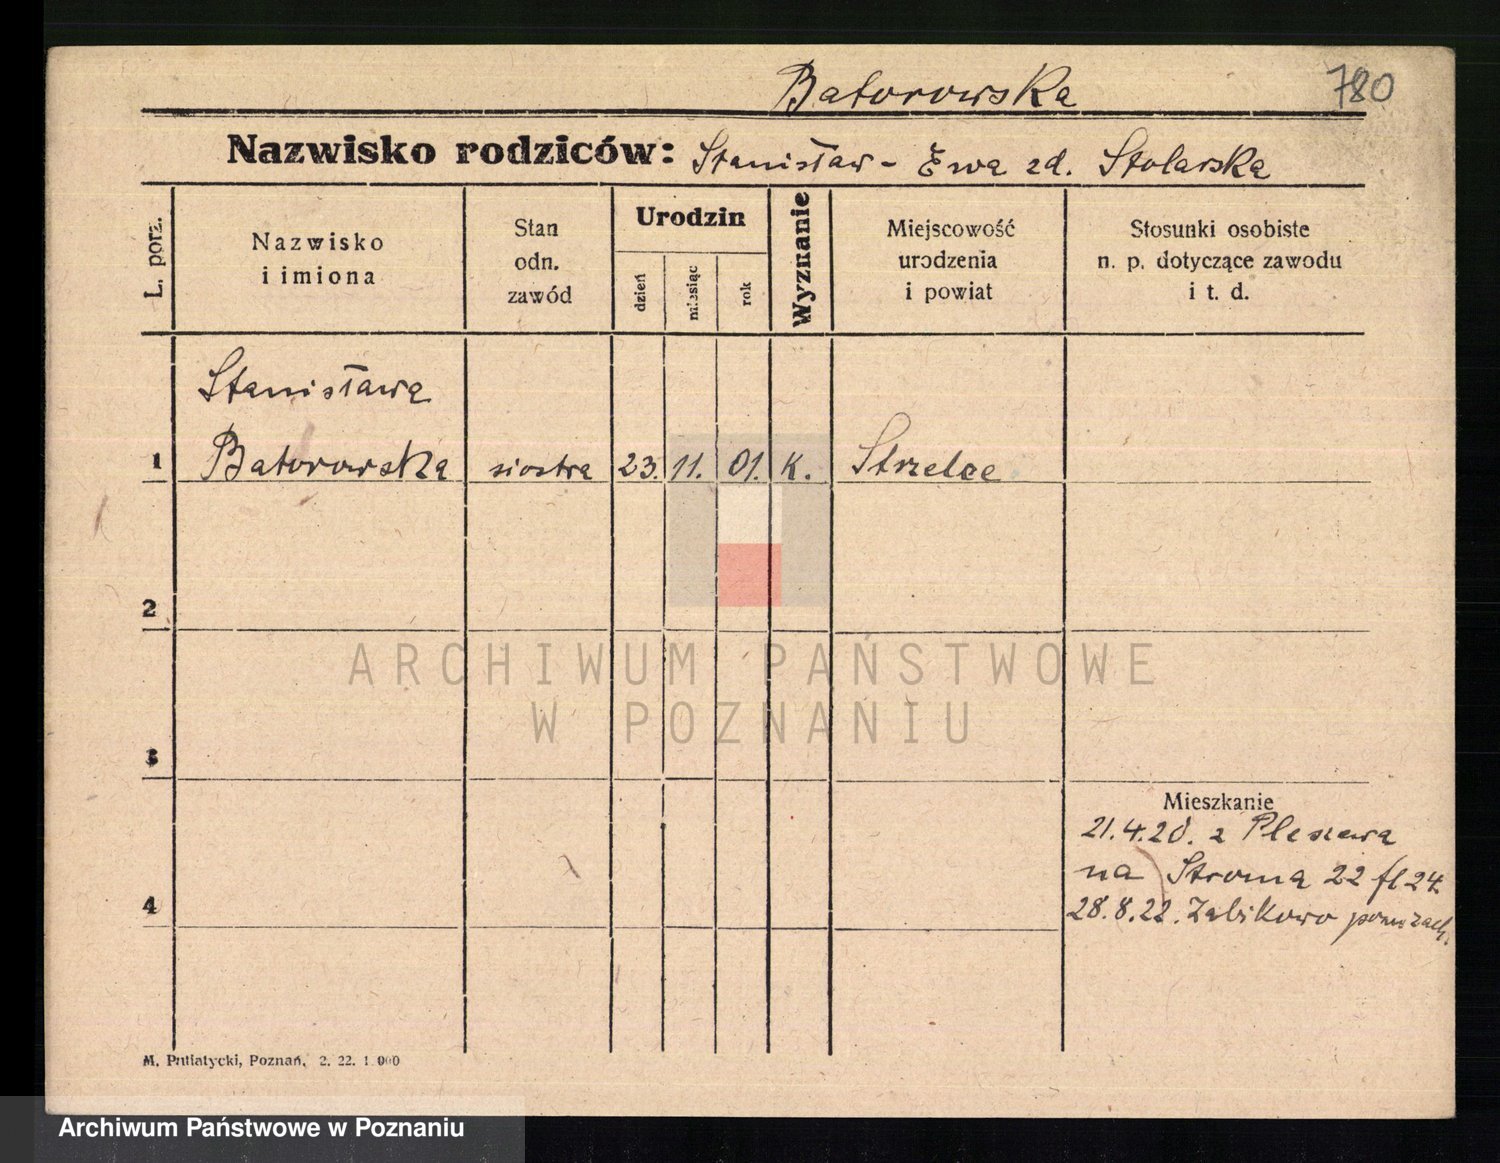 Batorowska 780
Nazwisko rodziców: Stanisław - Ewa zd. Stolarska
L. porz.
Nazwisko
i imiona
Stan
odn.
zawód
Urodzin
dzień
miesiąc
rok
Wyznanie
Miejscowość
urodzenia
i powiat
Stosunki osobiste
n. p. dotyczące zawodu
i t. d.
Stanisława
1 Batorowska siostra 23. 11. 01. K. Strzelce
2
ARCHIWUM PAŃSTWOWE
W POZNANIU
3
Mieszkanie
21.4.20. z Pleszewa
na Stroma 22 fl 24.
4 28.8.22. Żabikowo
M. Putiatycki, Poznań, 2. 22. 1 000
Archiwum Państwowe w Poznaniu